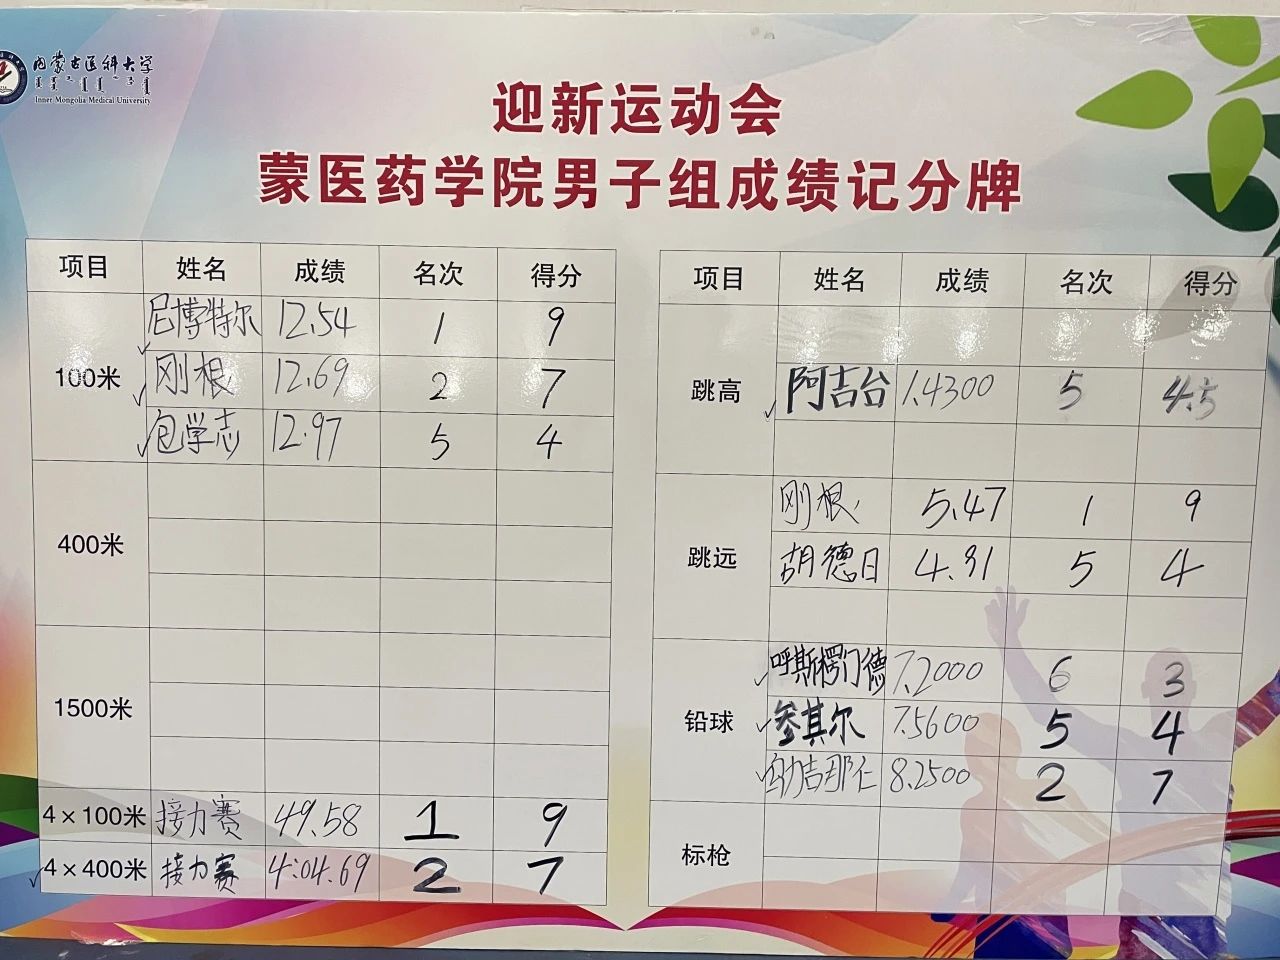 内蒙古医科大学
Inner Mongolia Medical University
迎新运动会
蒙医药学院男子组成绩记分牌
项目 姓名 成绩 名次 得分
100米
尼博特尔 12.54 1 9
刚根 12.69 2 7
包学志 12.97 5 4
400米
1500米
4×100米 接力赛 49.58 1 9
4×400米 接力赛 4:04.69 2 7
项目 姓名 成绩 名次 得分
跳高
阿吉台 1.4300 5 4.5
跳远
刚根 5.47 1 9
胡德日 4.91 5 4
铅球
呼斯楞门德 7.2000 6 3
参其尔 7.5600 5 4
乌力吉那仁 8.2500 2 7
标枪